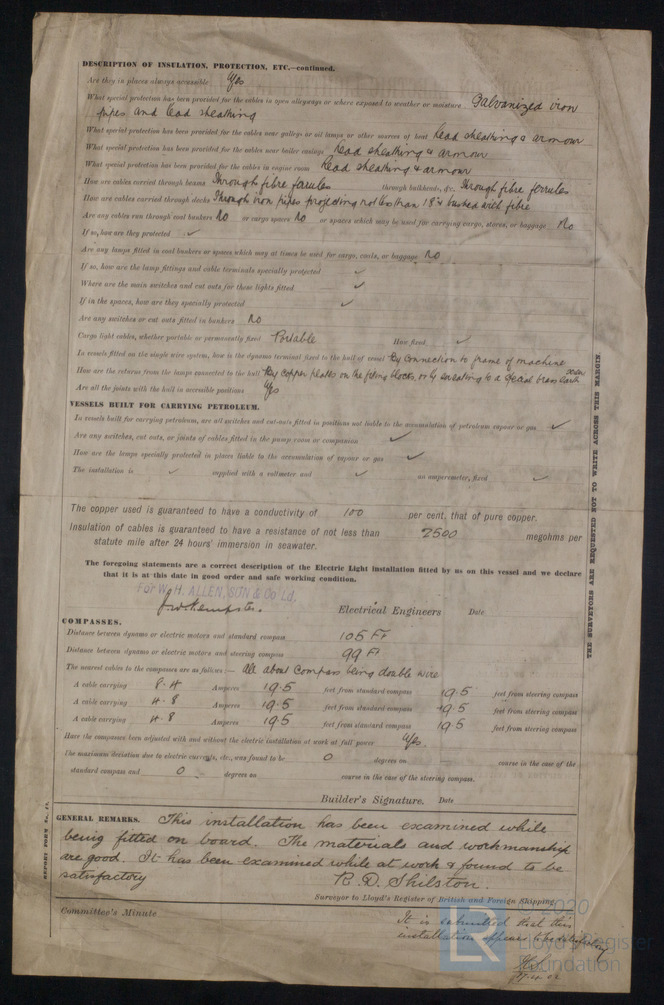 DESCRIPTION OF INSULATION, PROTECTION, ETC.—continued.
Are they in places always accessible Yes
What special protection has been provided for the cables in open alleyways or where exposed to weather or moisture Galvanized iron
pipes and lead sheathing
What special protection has been provided for the cables near galleys or oil lamps or other sources of heat Lead sheathing & armour
What special protection has been provided for the cables near boiler casings Lead sheathing & armour
What special protection has been provided for the cables in engine room Lead sheathing & armour
How are cables carried through beams Through fibre ferrules through bulkheads, &c. Through fibre ferrules
How are cables carried through decks Through iron pipes projecting not less than 18" bushed with fibre
Are any cables run through coal bunkers No or cargo spaces No or spaces which may be used for carrying cargo, stores, or baggage No
If so, how are they protected ✓
Are any lamps fitted in coal bunkers or spaces which may at times be used for cargo, coals, or baggage No
If so, how are the lamp fittings and cable terminals specially protected ✓
Where are the main switches and cut outs for these lights fitted ✓
If in the spaces, how are they specially protected ✓
Are any switches or cut outs fitted in bunkers No
Cargo light cables, whether portable or permanently fixed Portable How fixed ✓
In vessels fitted on the single wire system, how is the dynamo terminal fixed to the hull of vessel By connection to frame of machine
How are the returns from the lamps connected to the hull By copper plates on the fixing blocks, or by sweating to a special brass earth screw
Are all the joints with the hull in accessible positions Yes
VESSELS BUILT FOR CARRYING PETROLEUM.
In vessels built for carrying petroleum, are all switches and cut-outs fitted in positions not liable to the accumulation of petroleum vapour or gas ✓
Are any switches, cut outs, or joints of cables fitted in the pump room or companion ✓
How are the lamps specially protected in places liable to the accumulation of vapour or gas ✓
The installation is ✓ supplied with a voltmeter and ✓ an amperemeter, fixed ✓
The copper used is guaranteed to have a conductivity of 100 per cent. that of pure copper.
Insulation of cables is guaranteed to have a resistance of not less than 2500 megohms per
statute mile after 24 hours' immersion in seawater.
The foregoing statements are a correct description of the Electric Light installation fitted by us on this vessel and we declare
that it is at this date in good order and safe working condition.
For W. H. ALLEN, SON & Co Ld.
J. W. Kempster. Electrical Engineers Date
COMPASSES.
Distance between dynamo or electric motors and standard compass 105 Ft
Distance between dynamo or electric motors and steering compass 99 Ft
The nearest cables to the compasses are as follows:— All about compass being double wire
A cable carrying 8.4 Amperes 19.5 feet from standard compass 19.5 feet from steering compass
A cable carrying 4.8 Amperes 19.5 feet from standard compass 19.5 feet from steering compass
A cable carrying 4.8 Amperes 19.5 feet from standard compass 19.5 feet from steering compass
Have the compasses been adjusted with and without the electric installation at work at full power Yes.
The maximum deviation due to electric currents, etc., was found to be 0 degrees on — course in the case of the
standard compass and 0 degrees on course in the case of the steering compass.
Builder's Signature. Date
GENERAL REMARKS. This installation has been examined while
being fitted on board. The materials and workmanship
are good. It has been examined while at work & found to be
satisfactory R. D. Shilston.
Surveyor to Lloyd's Register of British and Foreign Shipping.
Committee's Minute
It is submitted that this
installation appears to be satisfactory
THE SURVEYORS ARE REQUESTED NOT TO WRITE ACROSS THIS MARGIN.
LR
© 2020
Lloyd's Register
Foundation